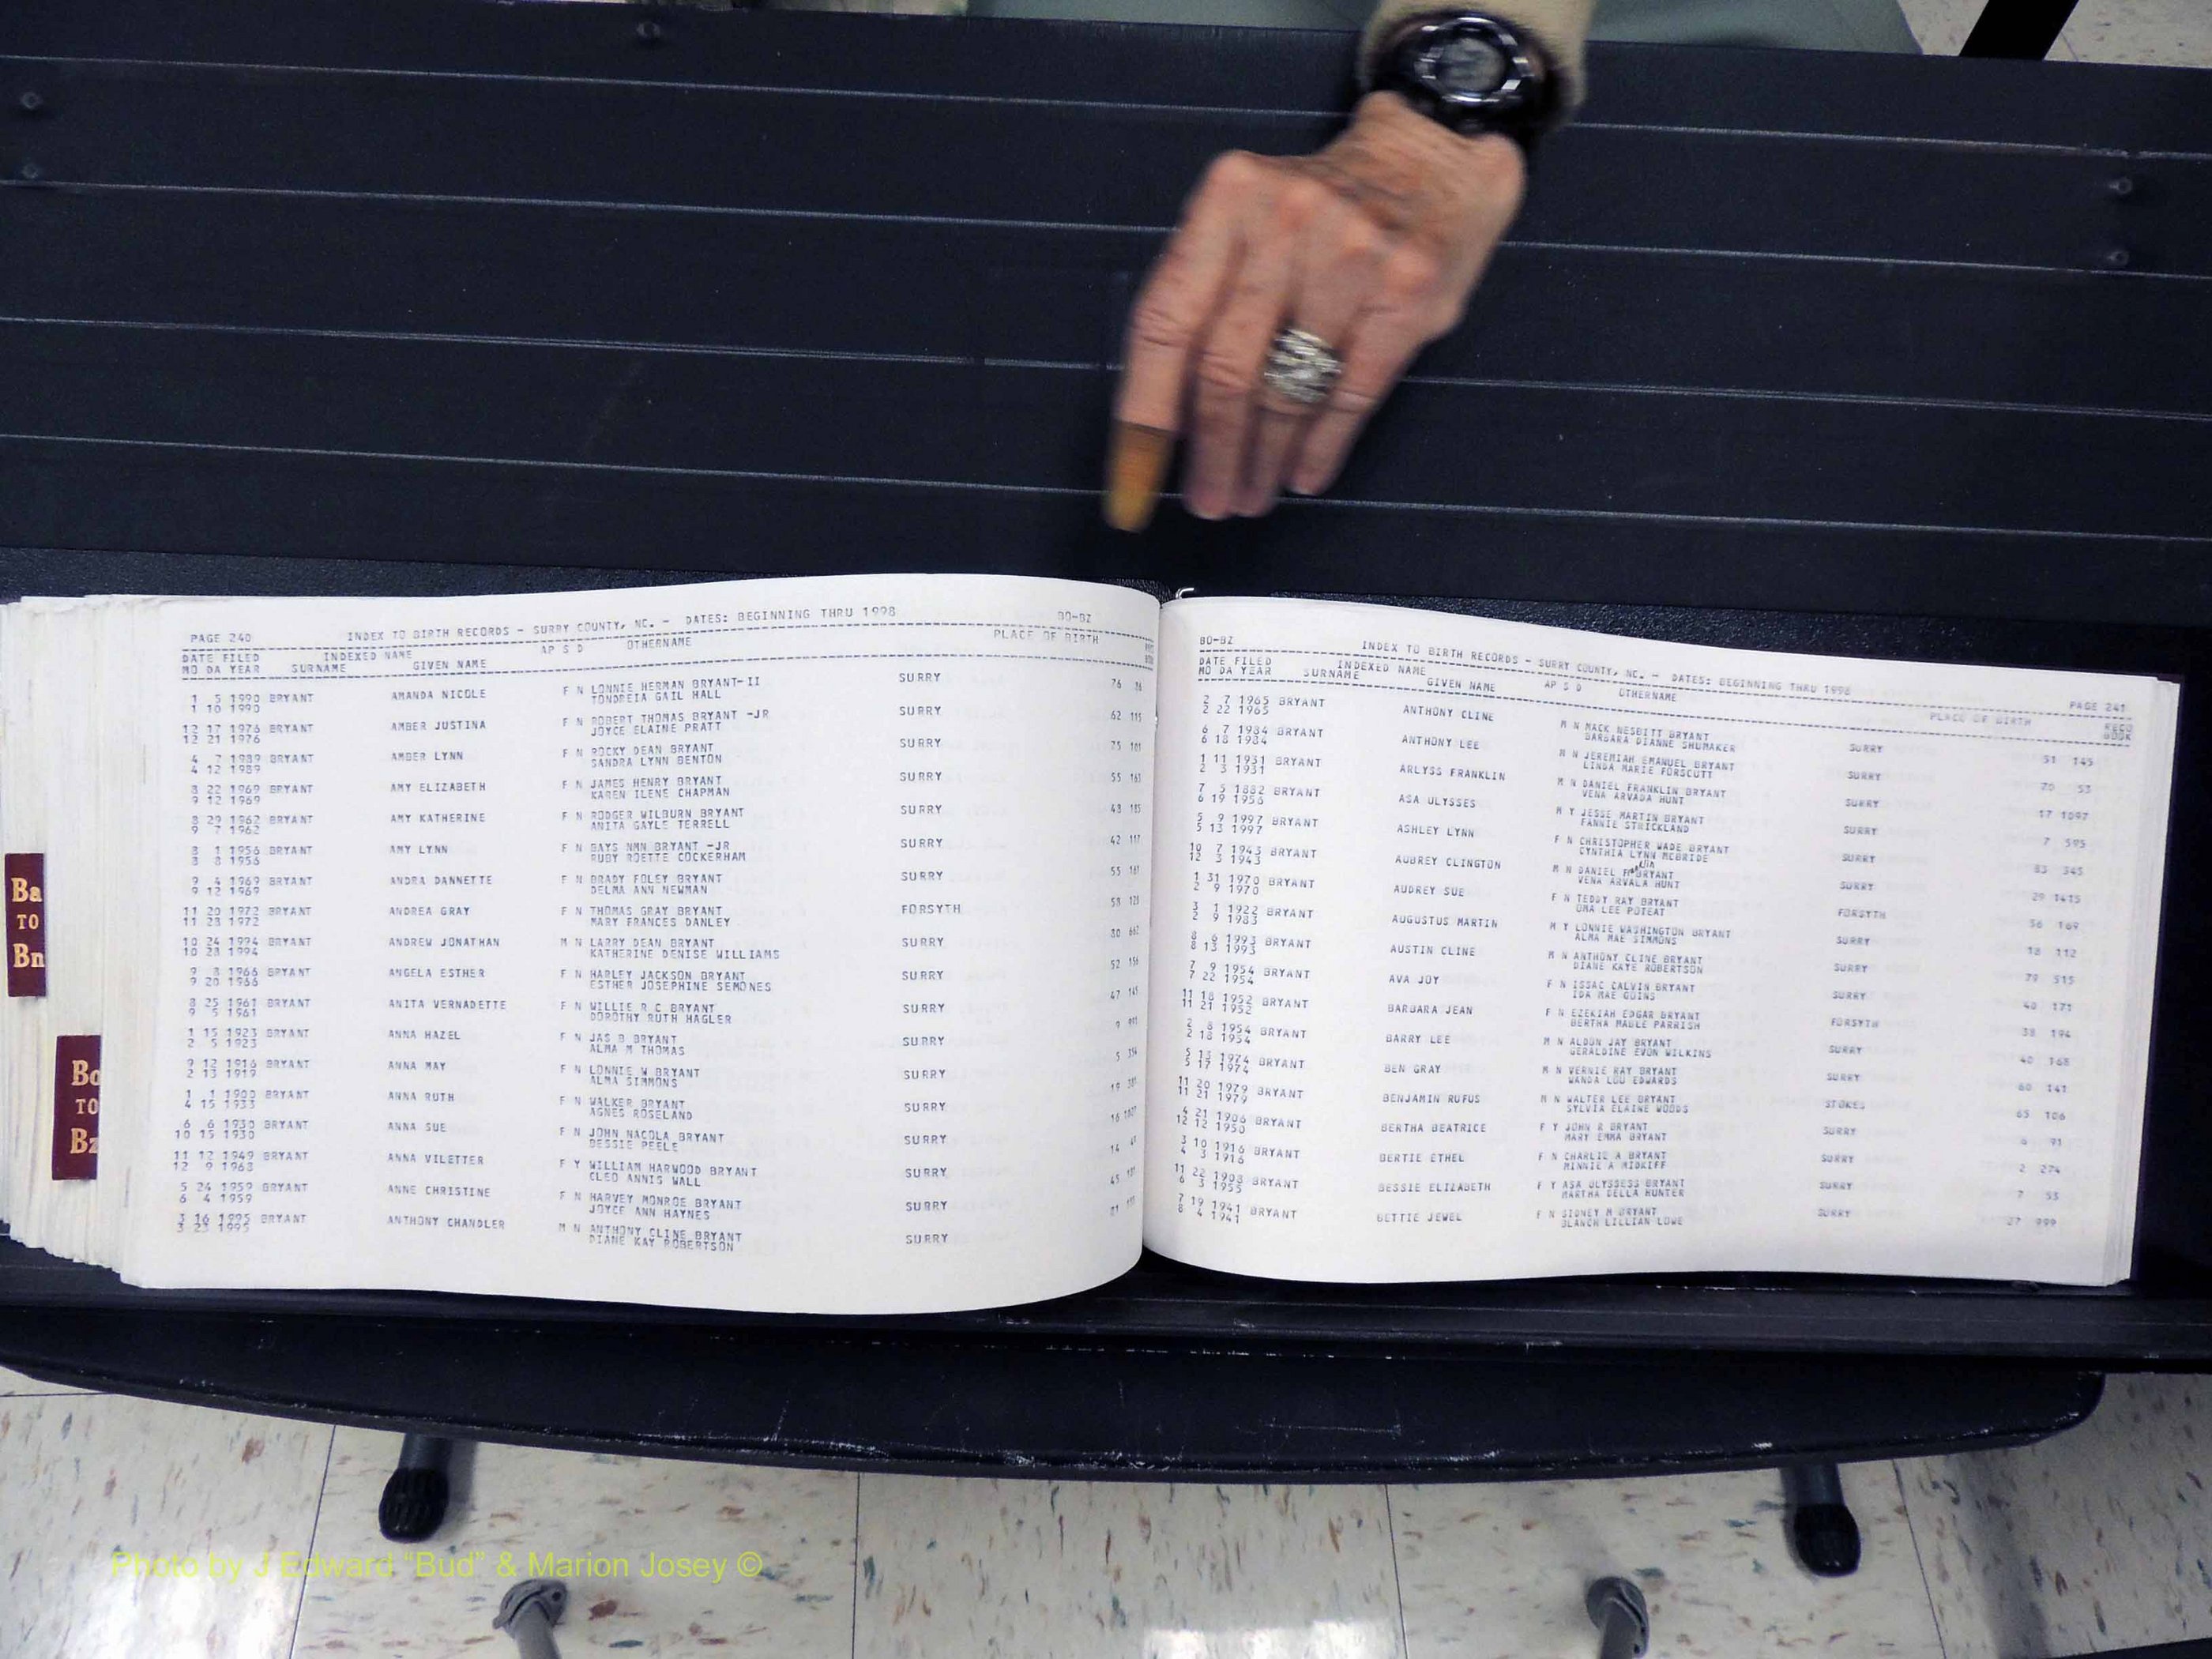 PAGE 240 INDEX TO BIRTH RECORDS - SURRY COUNTY, NC. - DATES: BEGINNING THRU 1998 BO-BZ
DATE FILED INDEXED NAME AP S D OTHERNAME PLACE OF BIRTH
MO DA YEAR SURNAME GIVEN NAME
1 5 1990 BRYANT AMANDA NICOLE F N LONNIE HERMAN BRYANT-II SURRY 76
1 10 1990 TONDREIA GAIL HALL
12 17 1976 BRYANT AMBER JUSTINA F N ROBERT THOMAS BRYANT -JR SURRY 62 115
12 21 1976 JOYCE ELAINE PRATT
4 7 1989 BRYANT AMBER LYNN F N ROCKY DEAN BRYANT SURRY 75 101
4 12 1989 SANDRA LYNN BENTON
8 22 1969 BRYANT AMY ELIZABETH F N JAMES HENRY BRYANT SURRY 55 161
9 12 1969 KAREN ILENE CHAPMAN
8 29 1962 BRYANT AMY KATHERINE F N RODGER WILBURN BRYANT SURRY 48 185
9 7 1962 ANITA GAYLE TERRELL
8 1 1956 BRYANT AMY LYNN F N BAYS NMN BRYANT -JR SURRY 42
8 8 1956 RUBY ROETTE COCKERHAM
9 4 1969 BRYANT ANDRA DANNETTE F N BRADY FOLEY BRYANT SURRY 55 161
9 12 1969 DELMA ANN NEWMAN
11 20 1972 BRYANT ANDREA GRAY F N THOMAS GRAY BRYANT FORSYTH 58
11 28 1972 MARY FRANCES DANLEY
10 24 1994 BRYANT ANDREW JONATHAN M N LARRY DEAN BRYANT SURRY 80
10 28 1994 KATHERINE DENISE WILLIAMS
9 8 1966 BRYANT ANGELA ESTHER F N HARLEY JACKSON BRYANT SURRY 52
9 20 1966 ESTHER JOSEPHINE SEMONES
8 25 1961 BRYANT ANITA VERNADETTE F N WILLIE R C BRYANT SURRY 47
9 5 1961 DOROTHY RUTH HAGLER
1 15 1923 BRYANT ANNA HAZEL F N JAS B BRYANT SURRY 9
2 5 1923 ALMA M THOMAS
9 12 1916 BRYANT ANNA MAY F N LONNIE W BRYANT SURRY 5
2 13 1919 ALMA SIMMONS
1 1 1900 BRYANT ANNA RUTH F N WALKER BRYANT SURRY 19
4 15 1933 AGNES ROSELAND
6 6 1930 BRYANT ANNA SUE F N JOHN NACOLA BRYANT SURRY 16
10 15 1930 BESSIE PEELE
11 12 1949 BRYANT ANNA VILETTER F Y WILLIAM HARWOOD BRYANT SURRY 14
12 9 1968 CLEO ANNIS WALL
5 24 1959 BRYANT ANNE CHRISTINE F N HARVEY MONROE BRYANT SURRY 45
6 4 1959 JOYCE ANN HAYNES
3 16 1995 BRYANT ANTHONY CHANDLER M N ANTHONY CLINE BRYANT SURRY
3 23 1995 DIANE KAY ROBERTSON
BO-BZ INDEX TO BIRTH RECORDS - SURRY COUNTY, NC. - DATES: BEGINNING THRU 1998 PAGE 241
DATE FILED INDEXED NAME AP S D OTHERNAME PLACE OF BIRTH
MO DA YEAR SURNAME GIVEN NAME BOOK
2 7 1965 BRYANT ANTHONY CLINE M N MACK NESBITT BRYANT SURRY 51 145
2 22 1965 BARBARA DIANNE SHUMAKER
6 7 1984 BRYANT ANTHONY LEE M N JEREMIAH EMANUEL BRYANT SURRY 70 53
6 18 1984 LINDA MARIE FORSCUTT
1 11 1931 BRYANT ARLYSS FRANKLIN M N DANIEL FRANKLIN BRYANT SURRY 17 1097
2 3 1931 VENA ARVADA HUNT
7 5 1882 BRYANT ASA ULYSSES M Y JESSE MARTIN BRYANT SURRY 7 595
6 19 1956 FANNIE STRICKLAND
5 9 1997 BRYANT ASHLEY LYNN F N CHRISTOPHER WADE BRYANT SURRY 83 345
5 13 1997 CYNTHIA LYNN MCBRIDE
10 7 1943 BRYANT AUBREY CLINGTON M N DANIEL BRYANT SURRY 29 1415
12 3 1943 VENA ARVALA HUNT
1 31 1970 BRYANT AUDREY SUE F N TEDDY RAY BRYANT FORSYTH 56 169
2 9 1970 OMA LEE POTEAT
3 1 1922 BRYANT AUGUSTUS MARTIN M Y LONNIE WASHINGTON BRYANT SURRY 18 112
2 9 1983 ALMA MAE SIMMONS
8 6 1993 BRYANT AUSTIN CLINE M N ANTHONY CLINE BRYANT SURRY 79 515
8 13 1993 DIANE KAYE ROBERTSON
7 9 1954 BRYANT AVA JOY F N ISSAC CALVIN BRYANT SURRY 40 171
7 22 1954 IDA MAE GOINS
11 18 1952 BRYANT BARBARA JEAN F N EZEKIAH EDGAR BRYANT FORSYTH 38 194
11 21 1952 BERTHA MABLE PARRISH
2 8 1954 BRYANT BARRY LEE M N ALDON JAY BRYANT SURRY 40 168
2 18 1954 GERALDINE EVON WILKINS
5 13 1974 BRYANT BEN GRAY M N VERNIE RAY BRYANT SURRY 60 141
5 17 1974 WANDA LOU EDWARDS
11 20 1979 BRYANT BENJAMIN RUFUS M N WALTER LEE BRYANT STOKES 65 106
11 21 1979 SYLVIA ELAINE WOODS
4 21 1906 BRYANT BERTHA BEATRICE F Y JOHN R BRYANT SURRY 6 91
12 12 1950 MARY EMMA BRYANT
3 10 1916 BRYANT BERTIE ETHEL F N CHARLIE A BRYANT SURRY 2 274
4 3 1916 MINNIE A MIDKIFF
11 22 1908 BRYANT BESSIE ELIZABETH F Y ASA ULYSSESS BRYANT SURRY 7 53
6 3 1955 MARTHA DELLA HUNTER
7 19 1941 BRYANT BETTIE JEWEL F N SIDNEY M BRYANT SURRY 27 999
8 4 1941 BLANCH LILLIAN LOWE
Ba
TO
Bn
Bo
TO
Bz
Photo by J Edward “Bud” & Marion Josey ©